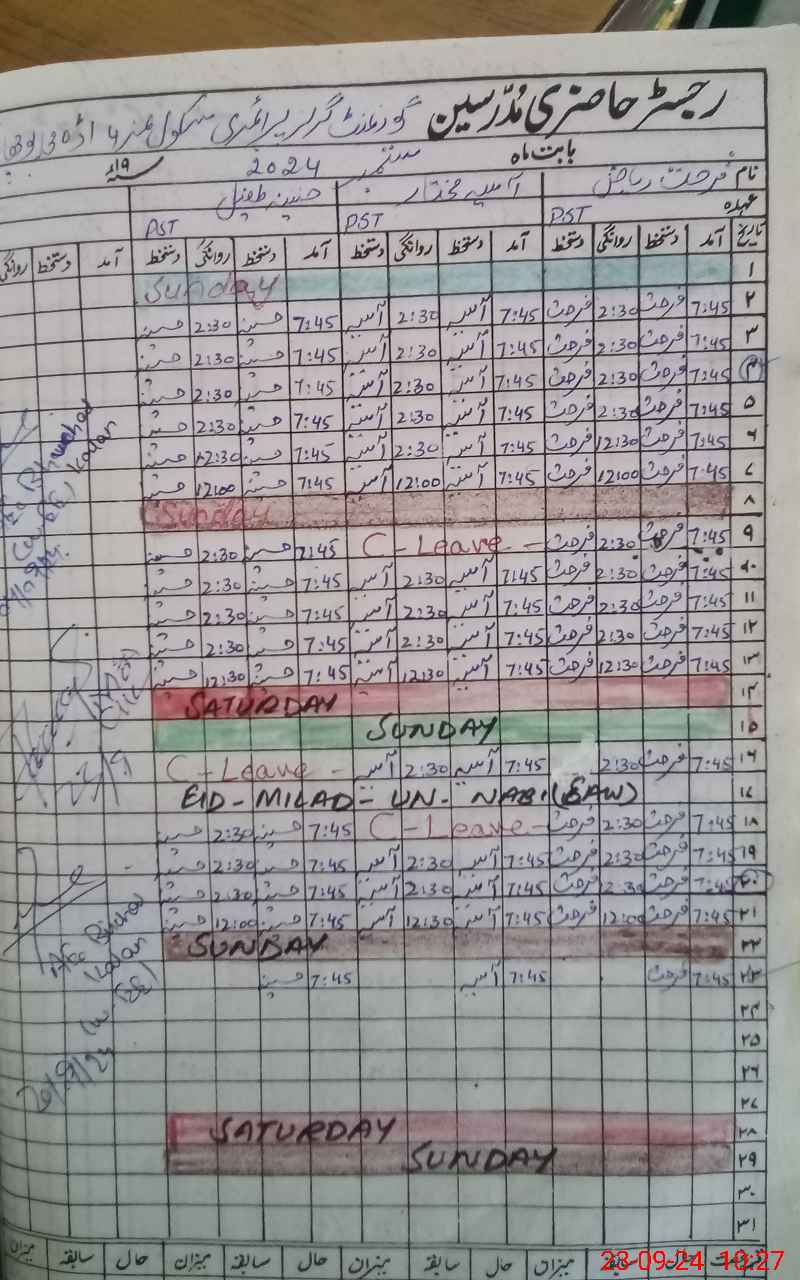 رجسٹر حاضری مُدرّسین گورنمنٹ گرلز پرائمری سکول نمبر 4
بابت ماہ ستمبر 2024 سنہ ۱۹ء
نام فرحت ریاض آسیہ مختار
عہدہ PST PST PST
تاریخ آمد دستخط روانگی دستخط آمد دستخط روانگی دستخط آمد دستخط روانگی دستخط آمد دستخط روانگی
۱ Sunday
۲ 7:45 فرحت 2:30 فرحت 7:45 آسیہ 2:30 آسیہ 7:45 حسینہ 2:30 حسینہ
۳ 7:45 فرحت 2:30 فرحت 7:45 آسیہ 2:30 آسیہ 7:45 حسینہ 2:30 حسینہ
۴ 7:45 فرحت 2:30 فرحت 7:45 آسیہ 2:30 آسیہ 7:45 حسینہ 2:30 حسینہ
۵ 7:45 فرحت 2:30 فرحت 7:45 آسیہ 2:30 آسیہ 7:45 حسینہ 2:30 حسینہ
۶ 7:45 فرحت 12:30 فرحت 7:45 آسیہ 2:30 آسیہ 7:45 حسینہ 12:30 حسینہ
۷ 7:45 فرحت 12:00 فرحت 7:45 آسیہ 12:00 آسیہ 7:45 حسینہ 12:00 حسینہ
۸ Sunday
۹ 7:45 فرحت 2:30 فرحت C - Leave - 7:45 حسینہ 2:30 حسینہ
۱۰ 7:45 فرحت 2:30 فرحت 7:45 آسیہ 2:30 آسیہ 7:45 حسینہ 2:30 حسینہ
۱۱ 7:45 فرحت 2:30 فرحت 7:45 آسیہ 2:30 آسیہ 7:45 حسینہ 2:30 حسینہ
۱۲ 7:45 فرحت 2:30 فرحت 7:45 آسیہ 2:30 آسیہ 7:45 حسینہ 2:30 حسینہ
۱۳ 7:45 فرحت 12:30 فرحت 7:45 آسیہ 12:30 آسیہ 7:45 حسینہ 12:30 حسینہ
۱۴ SATURDAY
۱۵ SUNDAY
۱۶ 7:45 فرحت 2:30 7:45 آسیہ 2:30 آسیہ C - Leave -
۱۷ EID - MILAD - UN - NABI (SAW)
۱۸ 7:45 فرحت 2:30 فرحت C - Leave - 7:45 حسینہ 2:30 حسینہ
۱۹ 7:45 فرحت 2:30 فرحت 7:45 آسیہ 2:30 آسیہ 7:45 حسینہ 2:30 حسینہ
۲۰ 7:45 فرحت 2:30 فرحت 7:45 آسیہ 2:30 آسیہ 7:45 حسینہ 2:30 حسینہ
۲۱ 7:45 فرحت 12:00 فرحت 7:45 آسیہ 12:30 آسیہ 7:45 حسینہ 12:00 حسینہ
۲۲ SUNDAY
۲۳ 7:45 فرحت 7:45 آسیہ 7:45 حسینہ
۲۴
۲۵
۲۶
۲۷
۲۸ SATURDAY
۲۹ SUNDAY
۳۰
۳۱
حال سابقہ میزان حال سابقہ میزان حال سابقہ میزان حال سابقہ میزان
23-09-24 10:27